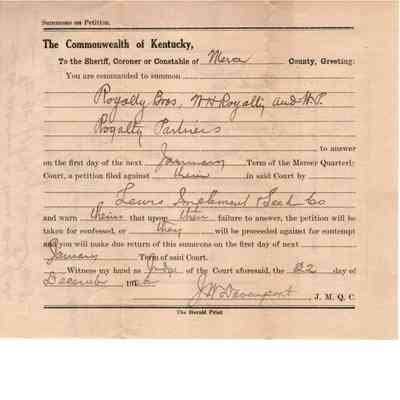 Summons on Petition.
The Commonwealth of Kentucky,
To the Sheriff, Coroner or Constable of Mercer County, Greeting:
You are commanded to summon
Royalty Bros, W H Royalty and H. P.
Royalty Partners
to answer
on the first day of the next January Term of the Mercer Quarterly
Court, a petition filed against them in said Court by
Lewis Implement & Seed Co
and warn them that upon their failure to answer, the petition will be
taken for confessed, or they will be proceeded against for contempt
and you will make due return of this summons on the first day of next
January Term of said Court.
Witness my hand as Judge of the Court aforesaid, the 22 day of
December 192
J W Davenport, J. M. Q. C.
The Herald Print